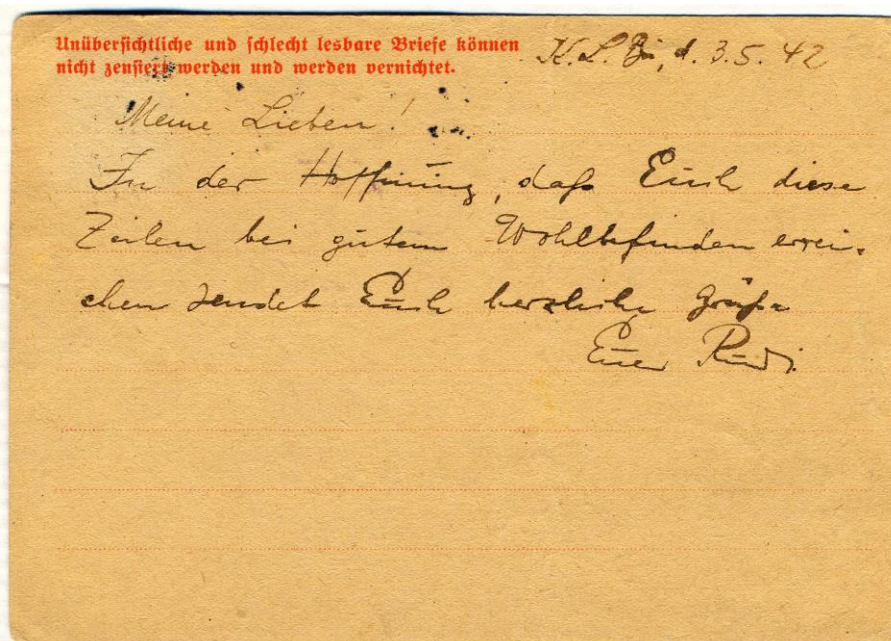 Unübersichtliche und schlecht lesbare Briefe können
nicht zensiert werden und werden vernichtet.
K. L. Bu, d. 3. 5. 42
Meine Lieben!
In der Hoffnung, daß Euch diese
Zeilen bei gutem Wohlbefinden errei-
chen sendet Euch herzliche Grüße
Euer Rudi